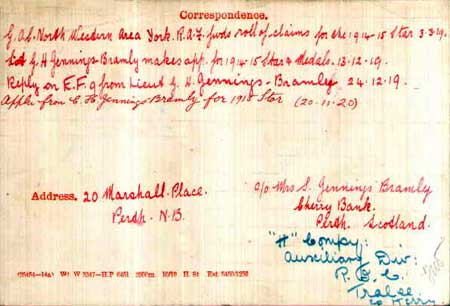 Correspondence.
G.A.S. North Western Area York. R.A.F. fwds roll of claims for the 1914-15 Star 3.3.19.
Lieut G.H Jennings-Bramly makes app. for 1914-15 Star & Medals. 13.12.19.
Reply on E.F.9 from Lieut G. H. Jennings-Bramly 24.12.19.
Applic from G. H. Jennings Bramly for 1915 Star (20.11.20)
Address. 20 Marshall Place.
Perth. N.B.
c/o Mrs S. Jennings Bramly
Cherry Bank.
Perth. Scotland.
"H" Compy:
Auxiliary Div:
R. I. C.
Tralee
Co Kerry